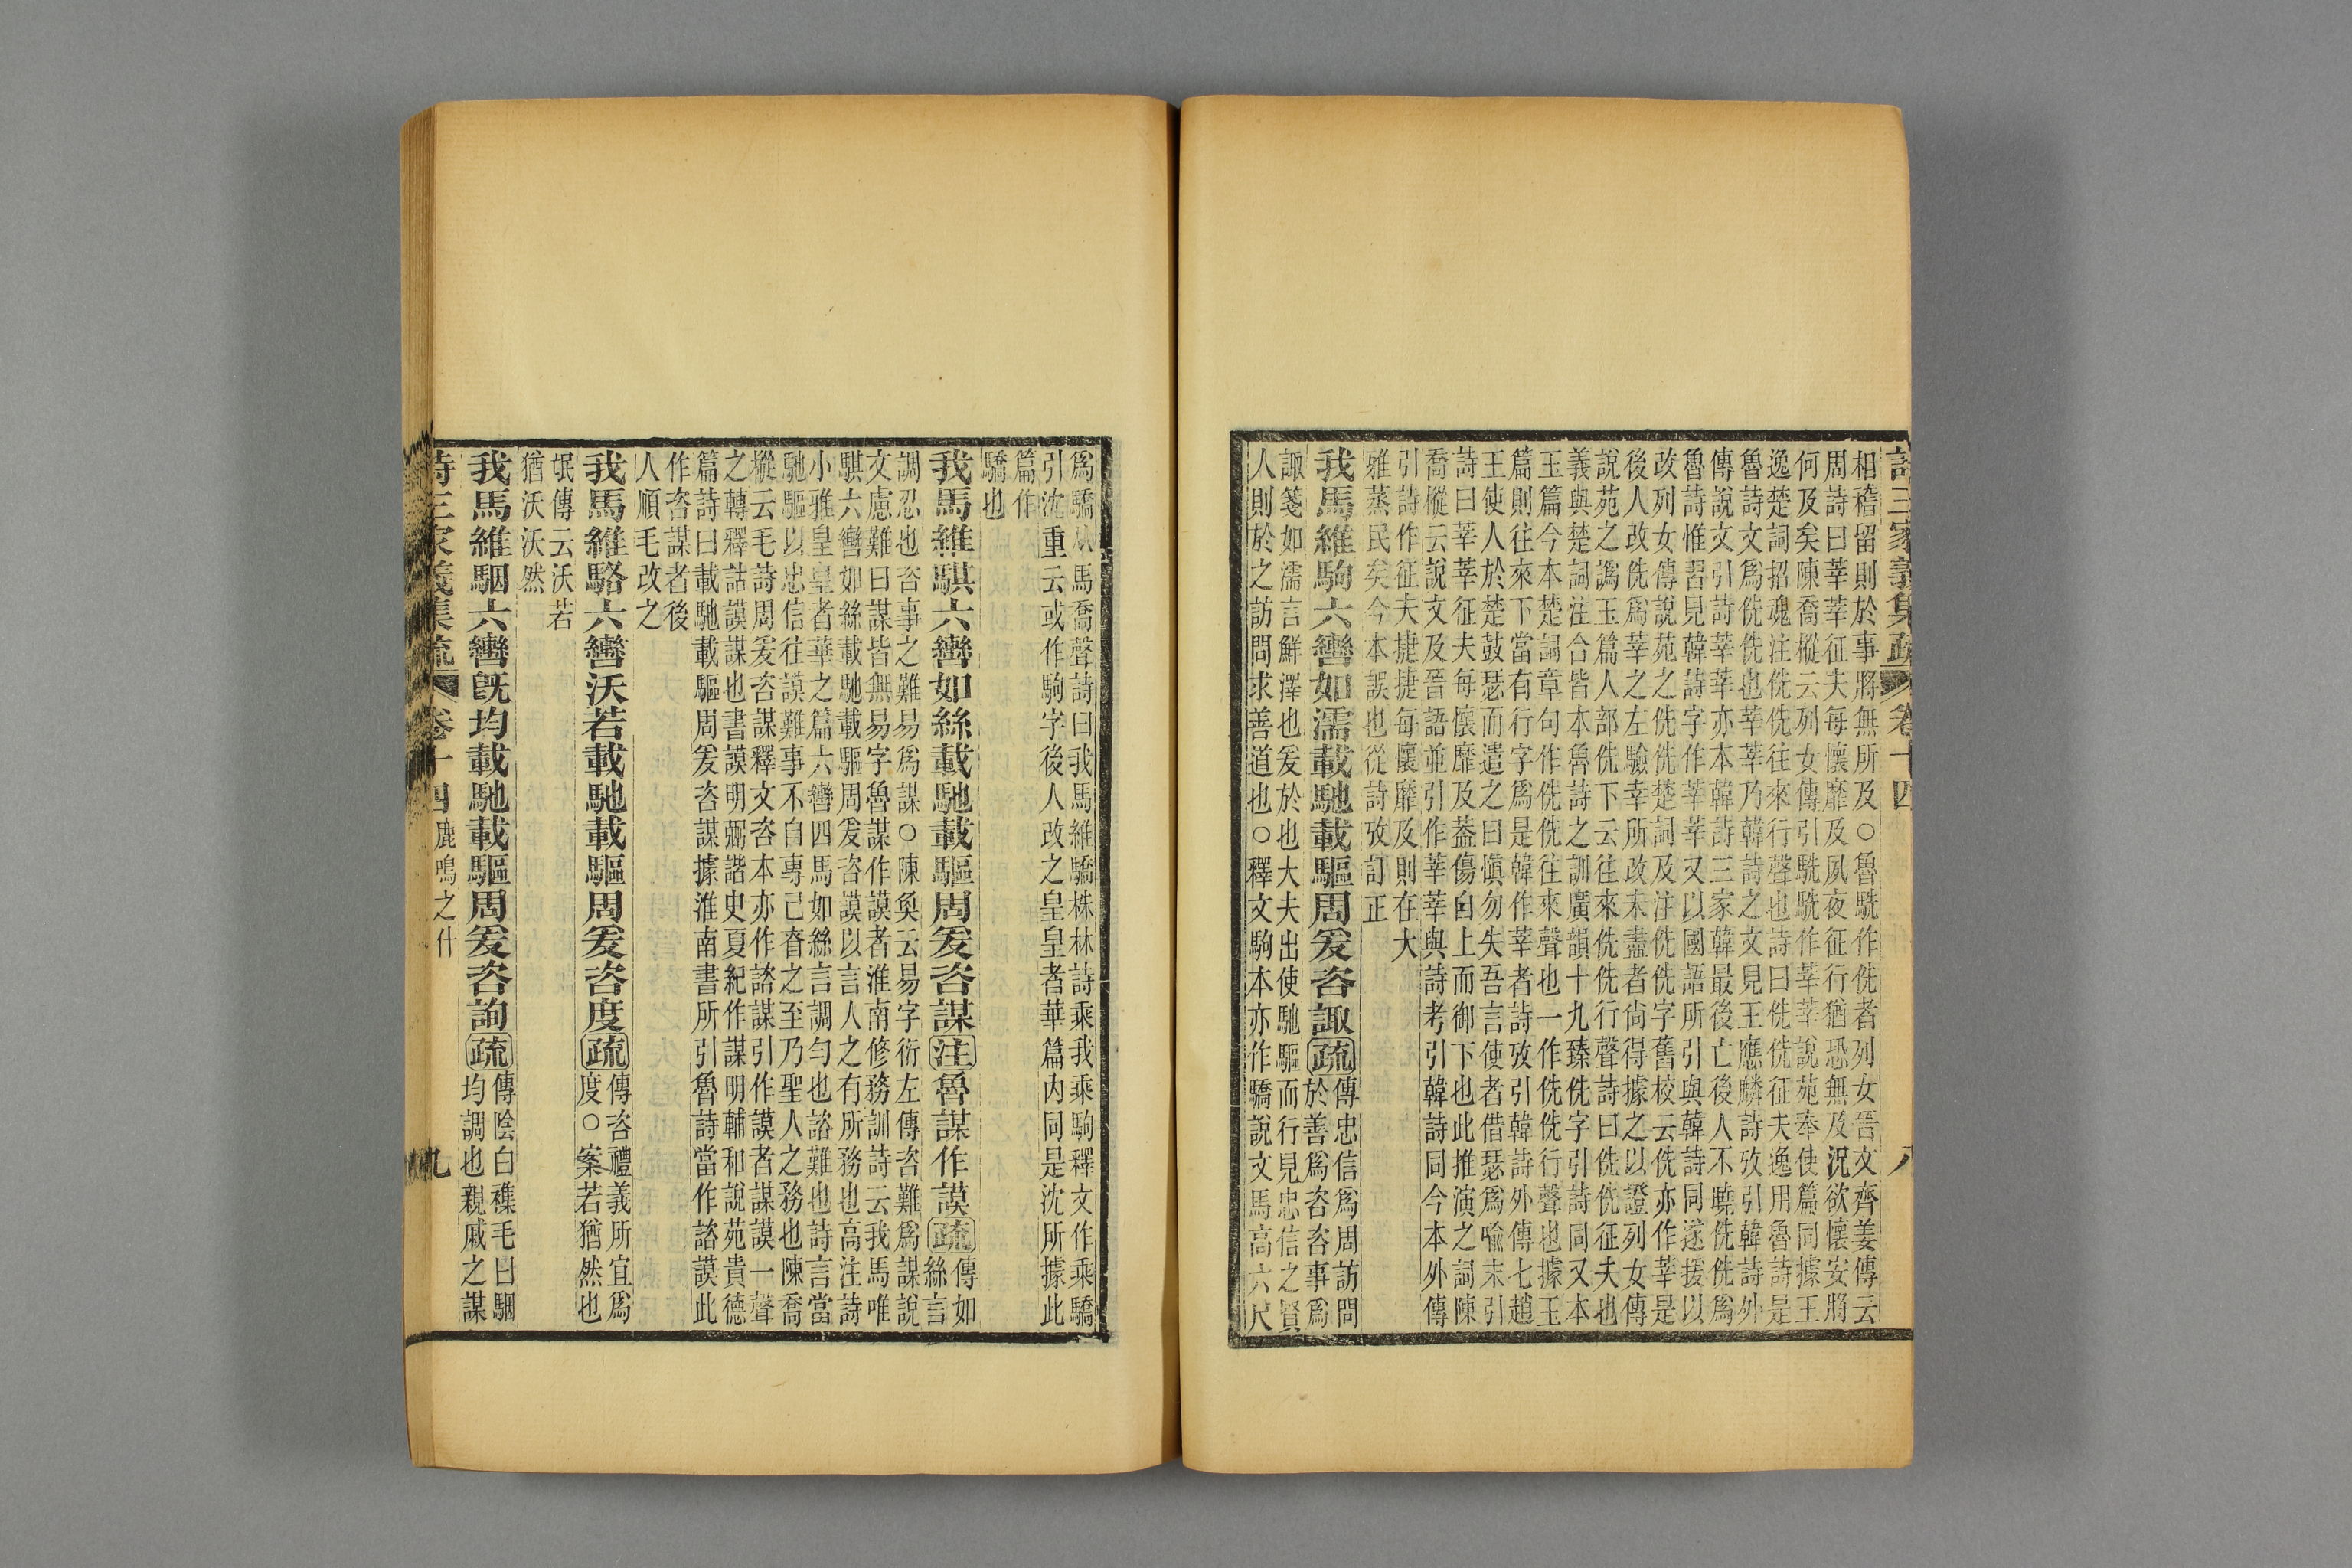 詩三家義集疏 卷十四 八
相稽留則於事將無所及○魯駪作侁者列女晉文齊姜傳云
周詩曰莘莘征夫每懷靡及夙夜征行猶恐無及況欲懷安將
何及矣陳喬樅云列女傳引駪駪作莘莘說苑奉使篇同據王
逸楚詞招魂注侁侁往來行聲也詩曰侁侁征夫逸用魯詩是
魯詩文爲侁侁也莘莘乃韓詩之文見王應麟詩攷引韓詩外
傳說文引詩莘莘亦本韓詩三家韓最後亡後人不曉侁侁爲
魯詩惟習見韓詩字作莘莘又以國語所引與韓詩同遂援以
改列女傳說苑之侁侁楚詞及注侁侁字舊校云侁亦作莘是
後人改侁爲莘之左驗幸所改未盡者尙得據之以證列女傳
說苑之譌玉篇人部侁下云往來侁侁行聲詩曰侁侁征夫也
義與楚詞注合皆本魯詩之訓廣韻十九臻侁字引詩同又本
玉篇今本楚詞章句作侁侁往來聲也一作侁侁行聲也據玉
篇則往來下當有行字爲是韓作莘者詩攷引韓詩外傳七趙
王使人於楚鼓瑟而遣之曰愼勿失吾言使者借瑟爲喻末引
詩曰莘莘征夫每懷靡及葢傷自上而御下也此推演之詞陳
喬樅云說文及晉語並引作莘莘與詩考引韓詩同今本外傳
引詩作征夫捷捷每懷靡及則在大
雅蒸民矣今本誤也從詩攷訂正
我馬維駒六轡如濡載馳載驅周爰咨諏疏傳忠信爲周訪問
於善爲咨咨事爲
諏箋如濡言鮮澤也爰於也大夫出使馳驅而行見忠信之賢
人則於之訪問求善道也○釋文駒本亦作驕說文馬高六尺
爲驕从馬喬聲詩曰我馬維驕株林詩乘我乘駒釋文作乘驕
引沈重云或作駒字後人改之皇皇者華篇內同是沈所據此
篇作
驕也
我馬維騏六轡如絲載馳載驅周爰咨謀注魯謀作謨疏傳如
絲言
調忍也咨事之難易爲謀○陳奐云易字衍左傳咨難爲謀說
文慮難曰謀皆無易字魯謀作謨者淮南修務訓詩云我馬唯
騏六轡如絲載馳載驅周爰咨謨以言人之有所務也高注詩
小雅皇皇者華之篇六轡四馬如絲言調勻也諮難也詩言當
馳驅以忠信往謨難事不自專己眘之至乃聖人之務也陳喬
樅云毛詩周爰咨謀釋文咨本亦作諮謀引作謨者謀謨一聲
之轉釋詁謨謀也書謨明弼諧史夏紀作謀明輔和說苑貴德
篇詩曰載馳載驅周爰咨謀據淮南書所引魯詩當作諮謨此
作咨謀者後
人順毛改之
我馬維駱六轡沃若載馳載驅周爰咨度疏傳咨禮義所宜爲
度○案若猶然也
氓傳云沃若
猶沃沃然
我馬維駰六轡旣均載馳載驅周爰咨詢疏傳陰白襍毛曰駰
均調也親戚之謀
詩三家義集疏 卷十四 鹿鳴之什 九